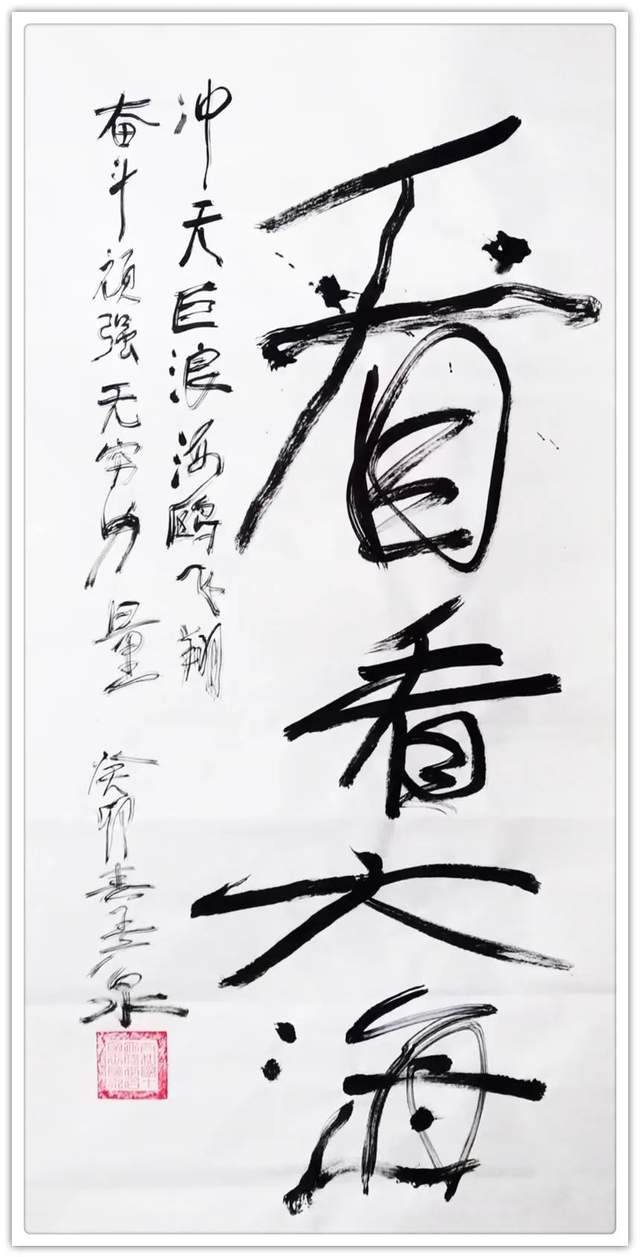 看看大海
冲天巨浪海鸥飞翔
奋斗顽强无穷力量
癸卯春
泉